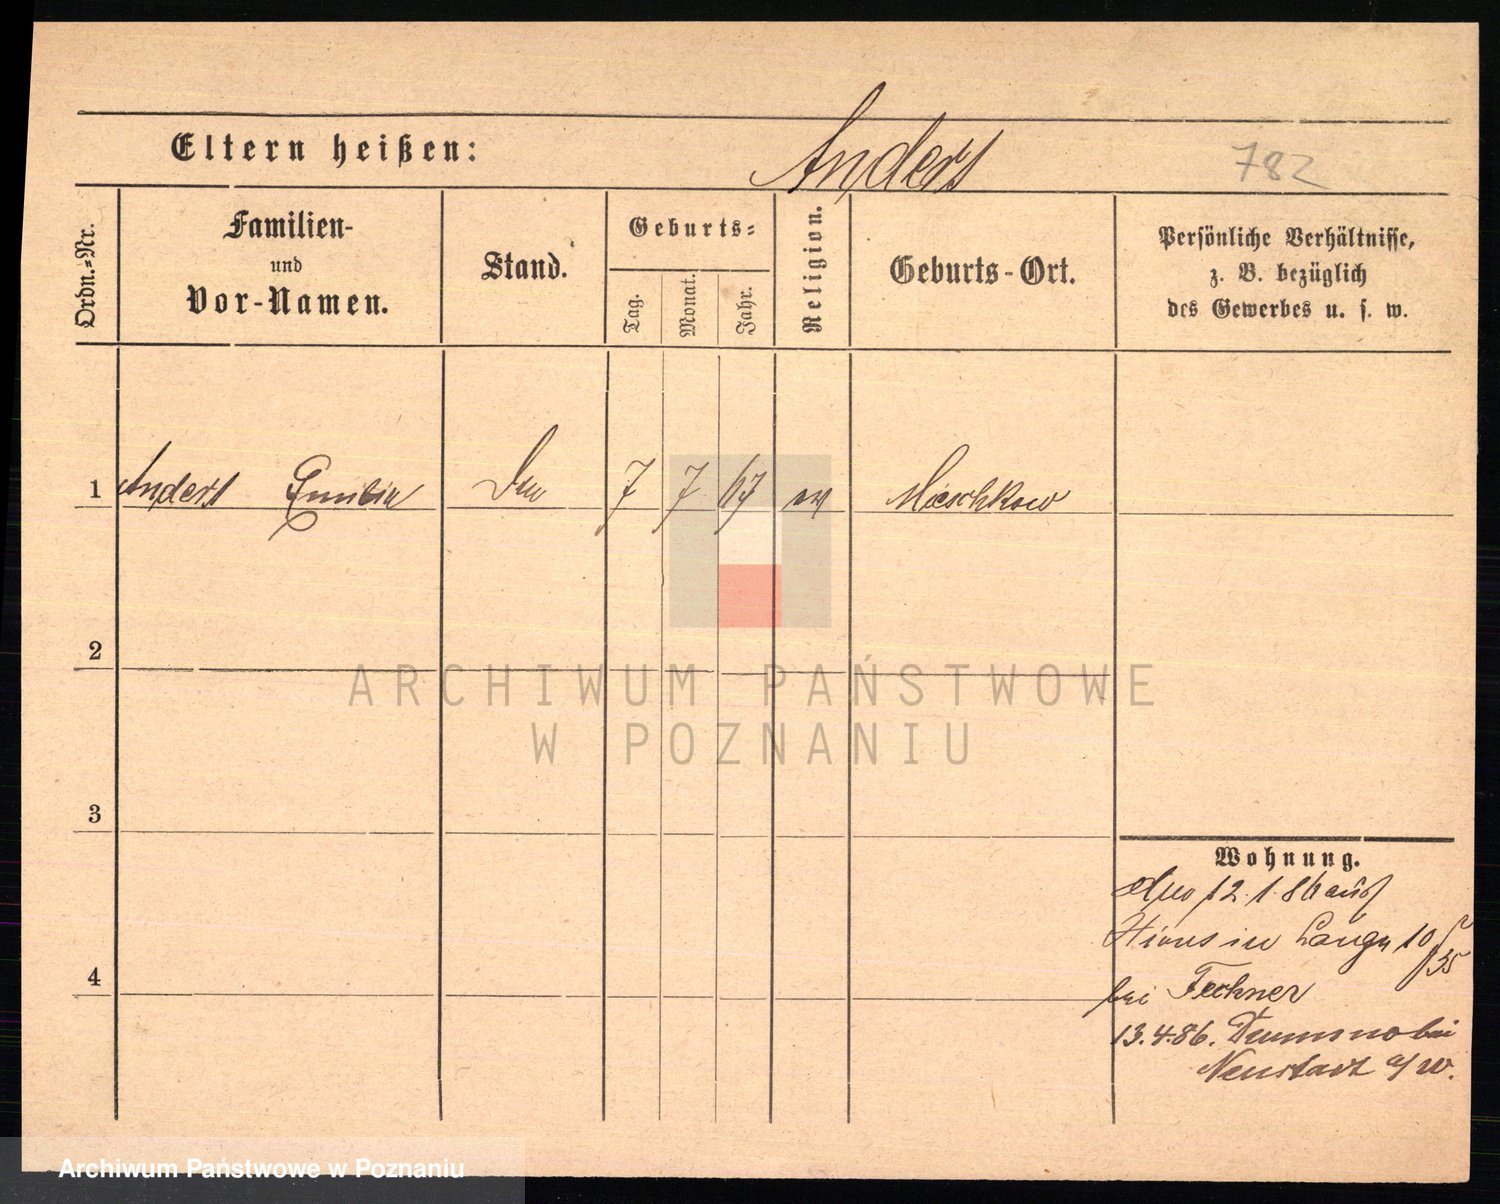 Eltern heißen:
Anders
782
Ordn.-Nr.
Familien-
und
Vor-Namen.
Stand.
Geburts-
Tag.
Monat.
Jahr.
Religion.
Geburts-Ort.
Persönliche Verhältnisse,
z. B. bezüglich
des Gewerbes u. s. w.
1 Anders Emilie 7 7 67 ev Mieschkow
2
3
4
Wohnung.
12.1.86 aus
in Lange 10
bei Fechner
13.4.86. bei
Neustadt a/W.
ARCHIWUM PAŃSTWOWE
W POZNANIU
Archiwum Państwowe w Poznaniu